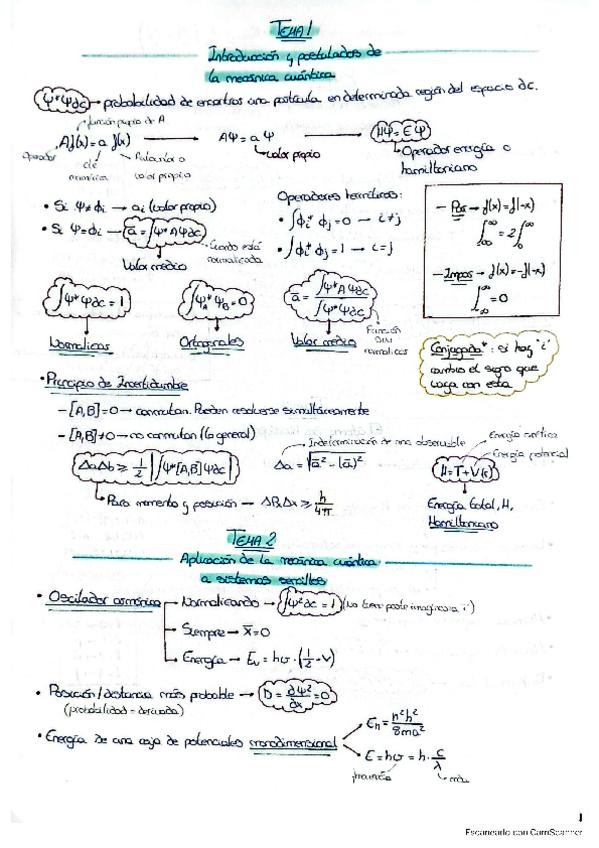 TEMA 1
Introducción y postulados de
la mecánica cuántica
Ψ*Ψdτ → probabilidad de encontrar una partícula en determinada región del espacio dτ.
función propia de A
Af(x) = a f(x) → AΨ = a Ψ → HΨ = EΨ
Operador
cte numérica
Autovalor o valor propio
valor propio
Operador energía o hamiltoniano
• Si Ψ≠ϕi → ai (valor propio)
• Si Ψ=ϕi → ā = ∫Ψ*AΨdτ
Cuando está normalizada
Valor medio
Operadores hermíticos:
• ∫ϕi* ϕj = 0 → i≠j
• ∫ϕi* ϕj = 1 → i=j
– Par → f(x) = f(-x)
∫ = 2∫
– Impar → f(x) = -f(-x)
∫ = 0
∫Ψ*Ψdτ = 1
Normalizar
∫ΨA* ΨB = 0
Ortogonales
ā = ∫Ψ*AΨdτ / ∫Ψ*Ψdτ
Valor medio
Función sin normalizar
Conjugada*: si hay 'i'
cambio el signo que
vaya con esta
• Principio de Incertidumbre
– [A,B] = 0 → conmutan. Pueden resolverse simultáneamente
– [A,B] ≠ 0 → no conmutan (lo general)
ΔaΔb ≥ 1/2 |∫Ψ*[A,B]Ψdτ|
Indeterminación de una observable
Δa = √(a̅²̅ - (ā)²)
Energía cinética
Energía potencial
H = T + V(r)
Energía total, H,
Hamiltoniano
Para momento y posición → ΔPxΔx ≥ h/4π
TEMA 2
Aplicación de la mecánica cuántica
a sistemas sencillos
• Oscilador armónico
Normalizando → ∫Ψ²dτ = 1 (No tiene parte imaginaria 'i')
Siempre → x̄ = 0
Energía → Ev = hν · (1/2 + v)
• Posición/distancia más probable → D = ∂Ψ²/∂x = 0
(probabilidad = derivada)
• Energía de una caja de potenciales monodimensional
En = n²h²/8ma²
E = hν = h · c/λ
1
Escaneado con CamScanner